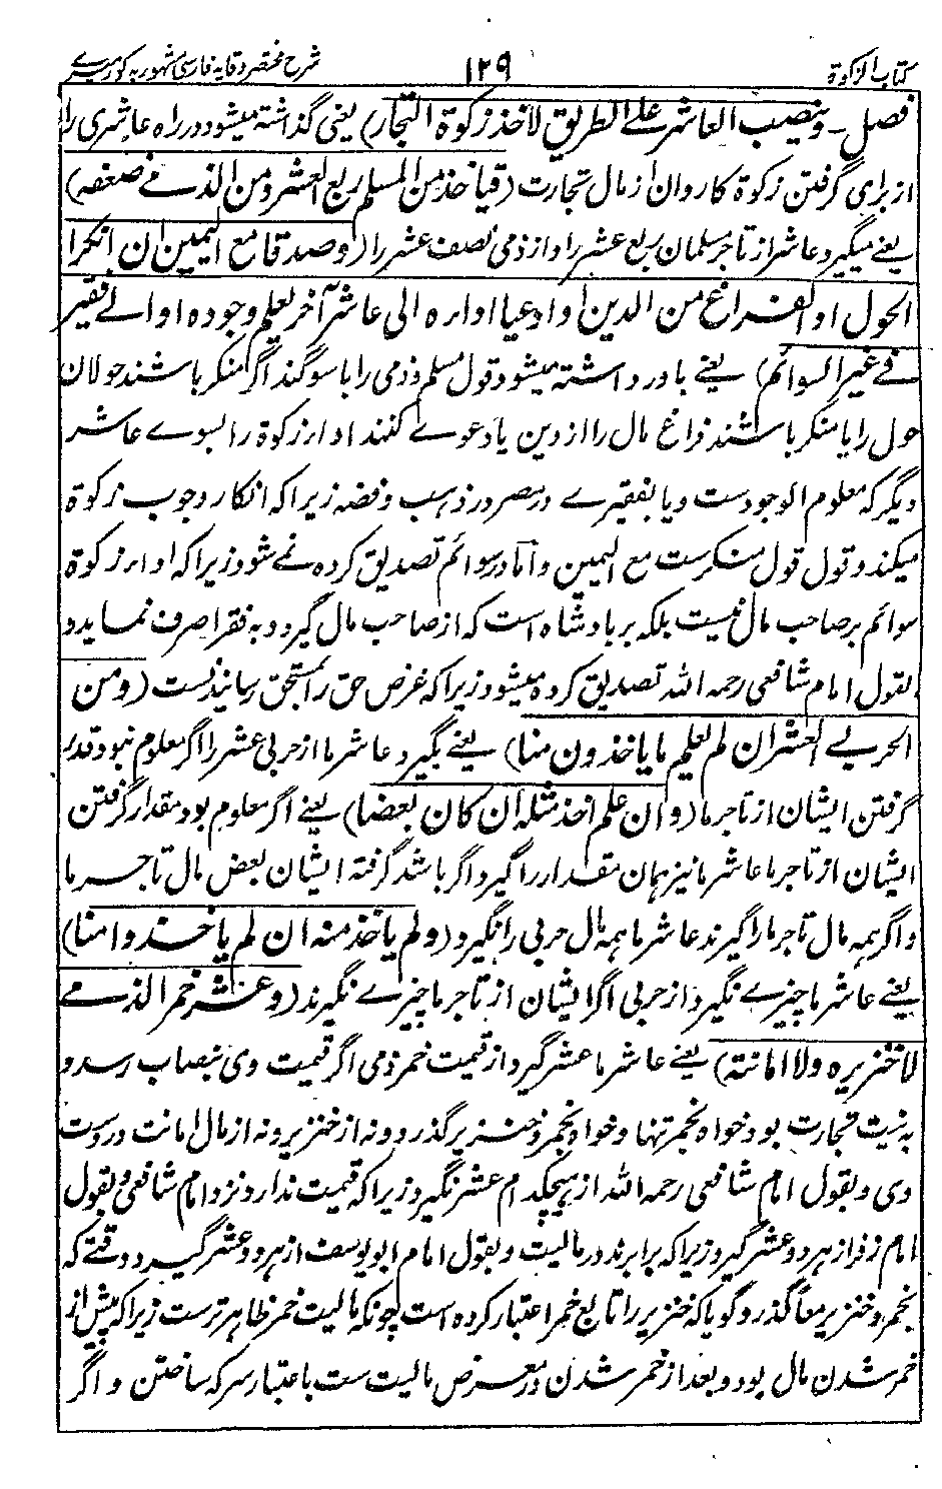 کتاب الزکوة ۱۲۹ شرح مختصر وقایه فارسی مشهور به کور میرے
فصل۔ وینصب العاشر علے الطریق لاخذ زکوة التجار) یعنی گذاشته میشود در راه عاشری را
از برای گرفتن زکوة کاروان از مال تجارت (فیاخذ من المسلم ربع العشر و من الذمے ضعفه)
یعنے میگیرد عاشر از تاجر مسلمان ربع عشر را و از ذمی نصف عشر را (و صدقا مع الیمین ان انکرا
الحول او الفراغ من الدین او ادعیا اداره الی عاشر آخر یعلم وجوده او الے فقیر
فے غیر السوائم) یعنے باور داشته میشود قول مسلم و ذمی را با سوگند اگر منکر باشند حولان
حول را یا منکر باشند فراغ مال را از دین یا دعوے کنند ادار زکوة را بسوے عاشر
دیگر که معلوم الوجودست و یا بفقیرے در مصر در ذهب و فضه زیرا که انکار وجوب زکوة
میکند و قول قول منکرست مع الیمین و اما در سوائم تصدیق کرده نمے شود زیرا که ادار زکوة
سوائم بر صاحب مال نیست بلکه بر بادشاه است که از صاحب مال گیرد و به فقرا صرف نماید و
بقول امام شافعی رحمه الله تصدیق کرده میشود زیرا که غرض حق را بمستحق رسانیدنست (و من
الحربے العشر ان لم یعلم ما یاخذون منا) یعنے بگیرد عاشر ما از حربی عشر را اگر معلوم نبود قدر
گرفتن ایشان از تاجر ما (و ان علم اخذ مثله ان کان بعضا) یعنے اگر معلوم بود مقدار گرفتن
ایشان از تاجر ما عاشر ما نیز همان مقدار را گیرد اگر باشد گرفته ایشان بعض مال تاجر ما
و اگر همه مال تاجر ما را گیرند عاشر ما همه مال حربی را نگیرد (و لم یاخذ منه ان لم یاخذوا منا)
یعنے عاشر ما چیزے نگیرد از حربی اگر ایشان از تاجر ما چیزے نگیرند (و عشر خمر الذمے
لا خنزیره و لا امانة) یعنے عاشر ما عشر گیرد از قیمت خمر ذمی اگر قیمت وی بنصاب رسد و
به نیت تجارت بود خواه بخمر تنها و خواه بخمر و خنزیر گذرد و نه از خنزیر و نه از مال امانت در دست
وی و بقول امام شافعی رحمه الله از هیچکدام عشر نگیرد زیرا که قیمت ندارد نزد امام شافعی و بقول
امام زفر از هر دو عشر گیرد زیرا که برابرند در مالیت و بقول امام ابو یوسف از هر دو عشر گیرد وقتے که
بخمر و خنزیر معاً گذرد گویا که خنزیر را تابع خمر اعتبار کرده است چونکه مالیت خمر ظاهر ترست زیرا که پیش از
خمر شدن مال بود و بعد از خمر شدن در معرض مالیت ست باعتبار سرکه ساختن و اگر